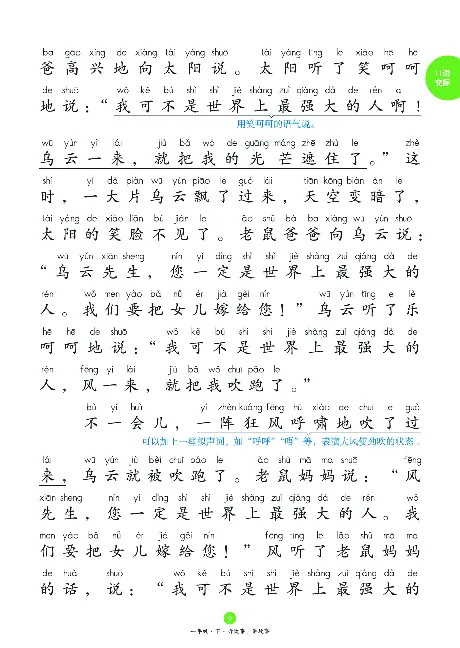 bà gāo xìng de xiàng tài yáng shuō tài yáng tīng le xiào hē hē
爸高兴地向太阳说。太阳听了笑呵呵
口语交际
de shuō wǒ kě bú shì shì jiè shàng zuì qiáng dà de rén a
地说：“我可不是世界上最强大的人啊！
用笑呵呵的语气说。
wū yún yì lái jiù bǎ wǒ de guāng máng zhē zhù le zhè
乌云一来，就把我的光芒遮住了。”这
shí yí dà piàn wū yún piāo le guò lái tiān kōng biàn àn le
时，一大片乌云飘了过来，天空变暗了，
tài yáng de xiào liǎn bú jiàn le lǎo shǔ bà ba xiàng wū yún shuō
太阳的笑脸不见了。老鼠爸爸向乌云说：
wū yún xiān sheng nín yí dìng shì shì jiè shàng zuì qiáng dà de
“乌云先生，您一定是世界上最强大的
rén wǒ men yào bǎ nǚ ér jià gěi nín wū yún tīng le lè
人。我们要把女儿嫁给您！”乌云听了乐
hē hē de shuō wǒ kě bú shì shì jiè shàng zuì qiáng dà de
呵呵地说：“我可不是世界上最强大的
rén fēng yì lái jiù bǎ wǒ chuī pǎo le
人，风一来，就把我吹跑了。”
bù yí huìr yí zhèn kuáng fēng hū xiào de chuī le guò
不一会儿，一阵狂风呼啸地吹了过
可以加上一些拟声词，如“呼呼”“嗖”等，表演大风使劲吹的状态。
lái wū yún jiù bèi chuī pǎo le lǎo shǔ mā ma shuō fēng
来，乌云就被吹跑了。老鼠妈妈说：“风
xiān sheng nín yí dìng shì shì jiè shàng zuì qiáng dà de rén wǒ
先生，您一定是世界上最强大的人。我
men yào bǎ nǚ ér jià gěi nín fēng tīng le lǎo shǔ mā ma
们要把女儿嫁给您！”风听了老鼠妈妈
de huà shuō wǒ kě bú shì shì jiè shàng zuì qiáng dà de
的话，说：“我可不是世界上最强大的